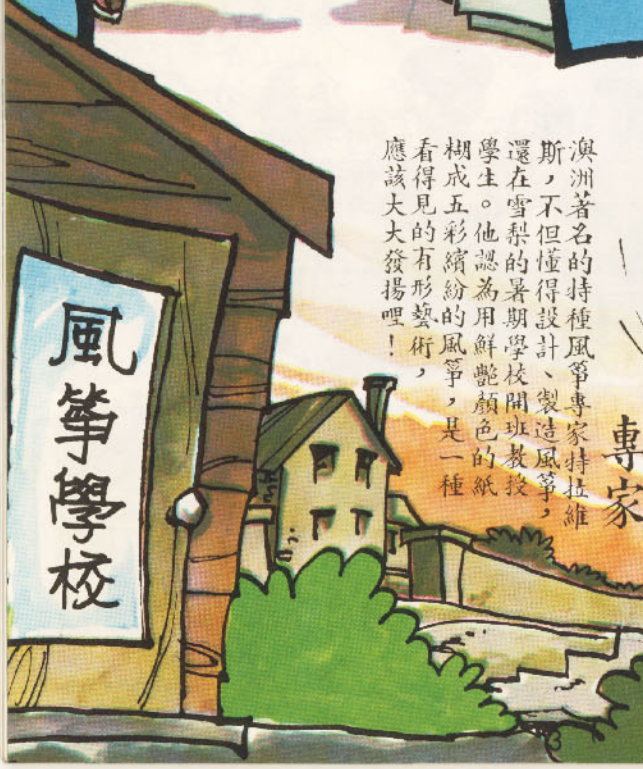 專家
澳洲著名的特種風箏專家特拉維
斯，不但懂得設計、製造風箏，
還在雪梨的暑期學校開班教授
學生。他認為用鮮艷顏色的紙
糊成五彩繽紛的風箏，是一種
看得見的有形藝術，
應該大大發揚哩！
風箏學校
3